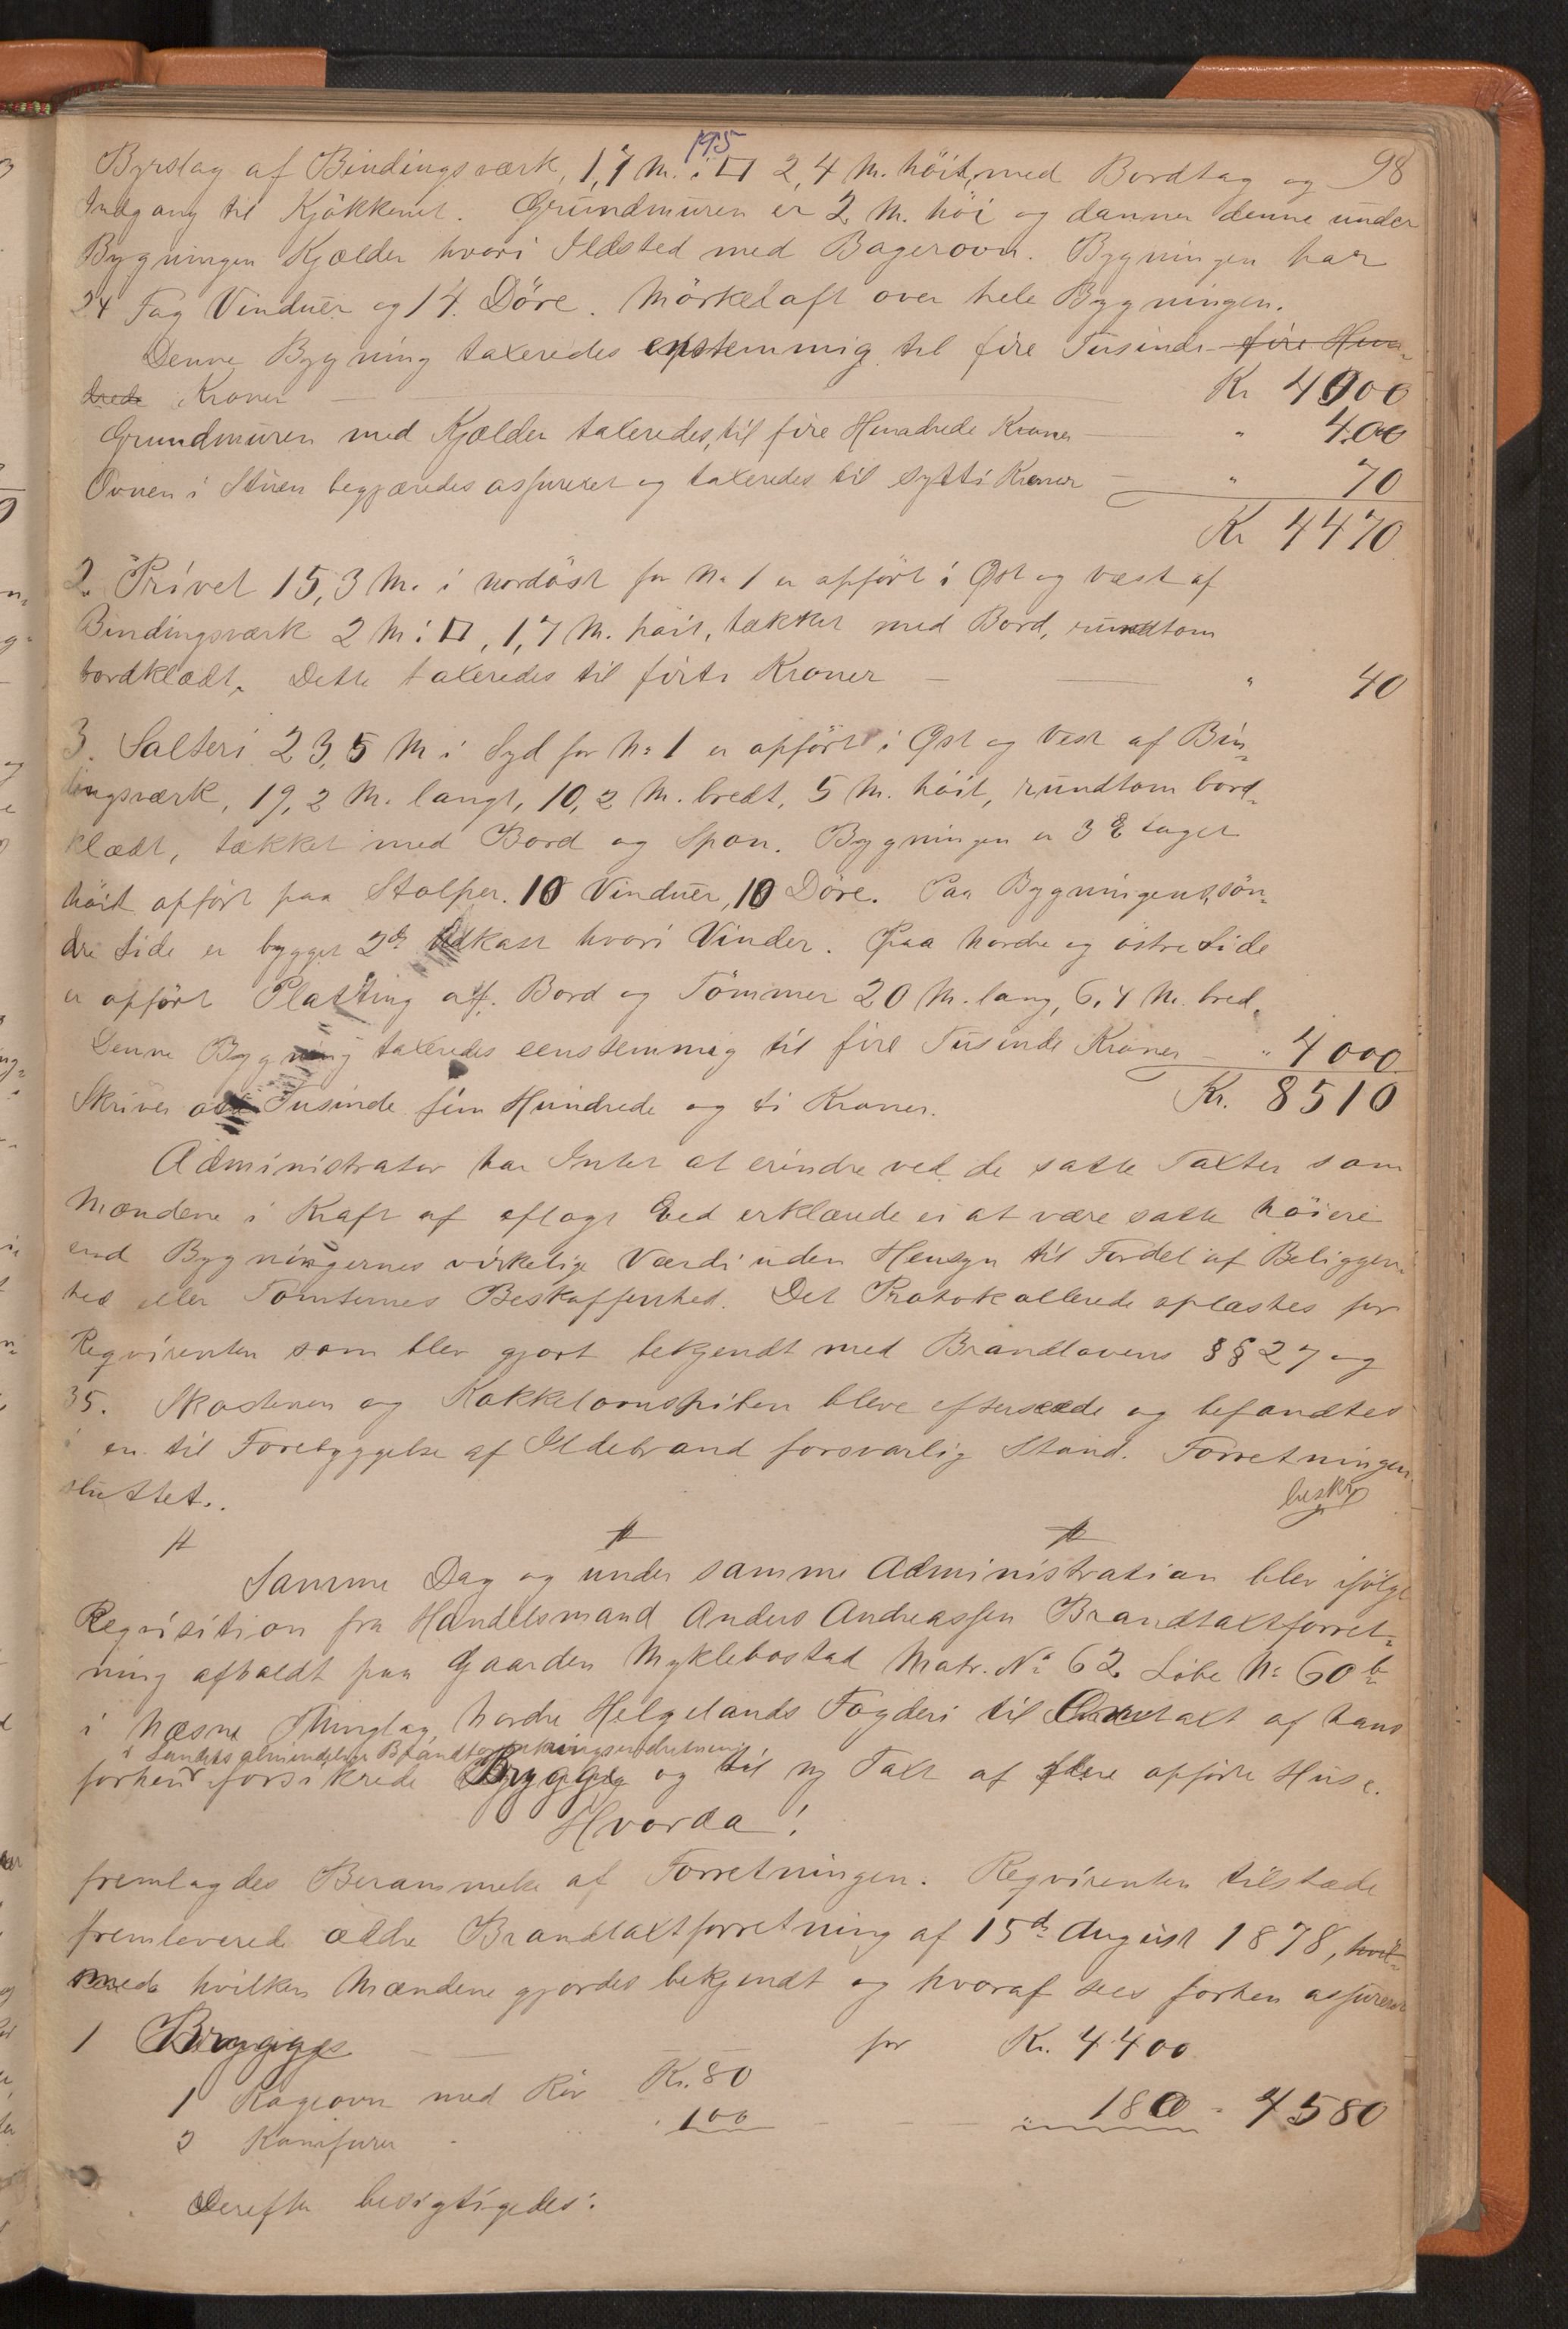 195
98
Byrslag af Bindingsværk, 1,7 M. i □ 2,4 M. höit, med Bordtag og
Indgang til Kjökkenet. Grundmuren er 2 M. höi og danner denne under
Bygningen Kjælder hvori Ildsted med Bagerovn. Bygningen har
24 Fag Vinduer og 14 Döre. Mörkeloft over hele Bygningen.
Denne Bygning taxeredes enstemmig til fire Tusinde fire Hun-
drede Kroner Kr 4000
Grundmuren med Kjælder taxeredes til fire Hundrede Kroner " 400
Ovnen i Stuen begjæredes assureret og taxeredes til sytti Kroner " 70
Kr 4470
2. Privet 15,3 M. i nordöst for No 1 er opfört i Øst og vest af
Bindingsværk 2 M i □, 1,7 M. höit, tækket med Bord, rundtom
bordklædt. Dette taxeredes til firti Kroner " 40
3. Salteri 23,5 M i Syd for No 1 er opfört i Øst og Vest af Bin-
dingsværk, 19,2 M. langt, 10,2 M. bredt, 5 M. höit, rundtom bord-
klædt, tækket med Bord og Spon. Bygningen er 3 Etager
höit opfört paa Stolper. 10 Vinduer, 10 Döre. Paa Bygningens sön-
dre Side er bygget 2de Udkast hvori Vinder. Paa Nordre og östre Side
er opfört Platting af Bord og Tömmer 20 M. lang, 6,4 M. bred.
Denne Bygning taxeredes eenstemmig til fire Tusinde Kroner " 4000
Skriver otte Tusinde fem Hundrede og ti Kroner. Kr. 8510
Administrator har Intet at erindre ved de satte Taxter som
Mændene i Kraft af aflagt Eed erklærede ei at være satte höiere
end Bygningernes virkelige Værdi uden Hensyn til Fordel af Beliggen-
hed eller Tomternes Beskaffenhed. Det Protokollerede oplæstes for
Reqvirenten som blev gjort bekjendt med Brandlovens §§ 27 og
35. Skostenen og Kakkelovnspiben bleve efterseede og befandtes
i en til Forebyggelse af Ildebrand forsvarlig Stand. Forretningen
sluttet.
beskr
Samme Dag og under samme Administration blev ifölge
Reqvisition fra Handelsmand Anders Andreassen Brandtaxtforret-
ning afholdt paa Gaarden Myklebostad Matr. No 62 Löbe No 60 b
i Næsne Thinglag Nordre Helgelands Fogderi til Omtaxt af hans
i Landets almindelige Brandforsikringsindretning
forhen forsikrede Brygge og til ny Taxt af flere opförte Huse.
Hvorda!
fremlagdes Berammelse af Forretningen. Reqvirenten tilstæde
fremleverede ældre Brandtaxtforretning af 15de August 1878, hvil-
med hvilken Mændene gjordes bekjendt og hvoraf sees forhen assureret
1 Brygge for Kr. 4400
1 Kogeovn med Rör Kr. 80
2 Komfurer " 100 " 180 - 4580
Derefter besigtigedes: